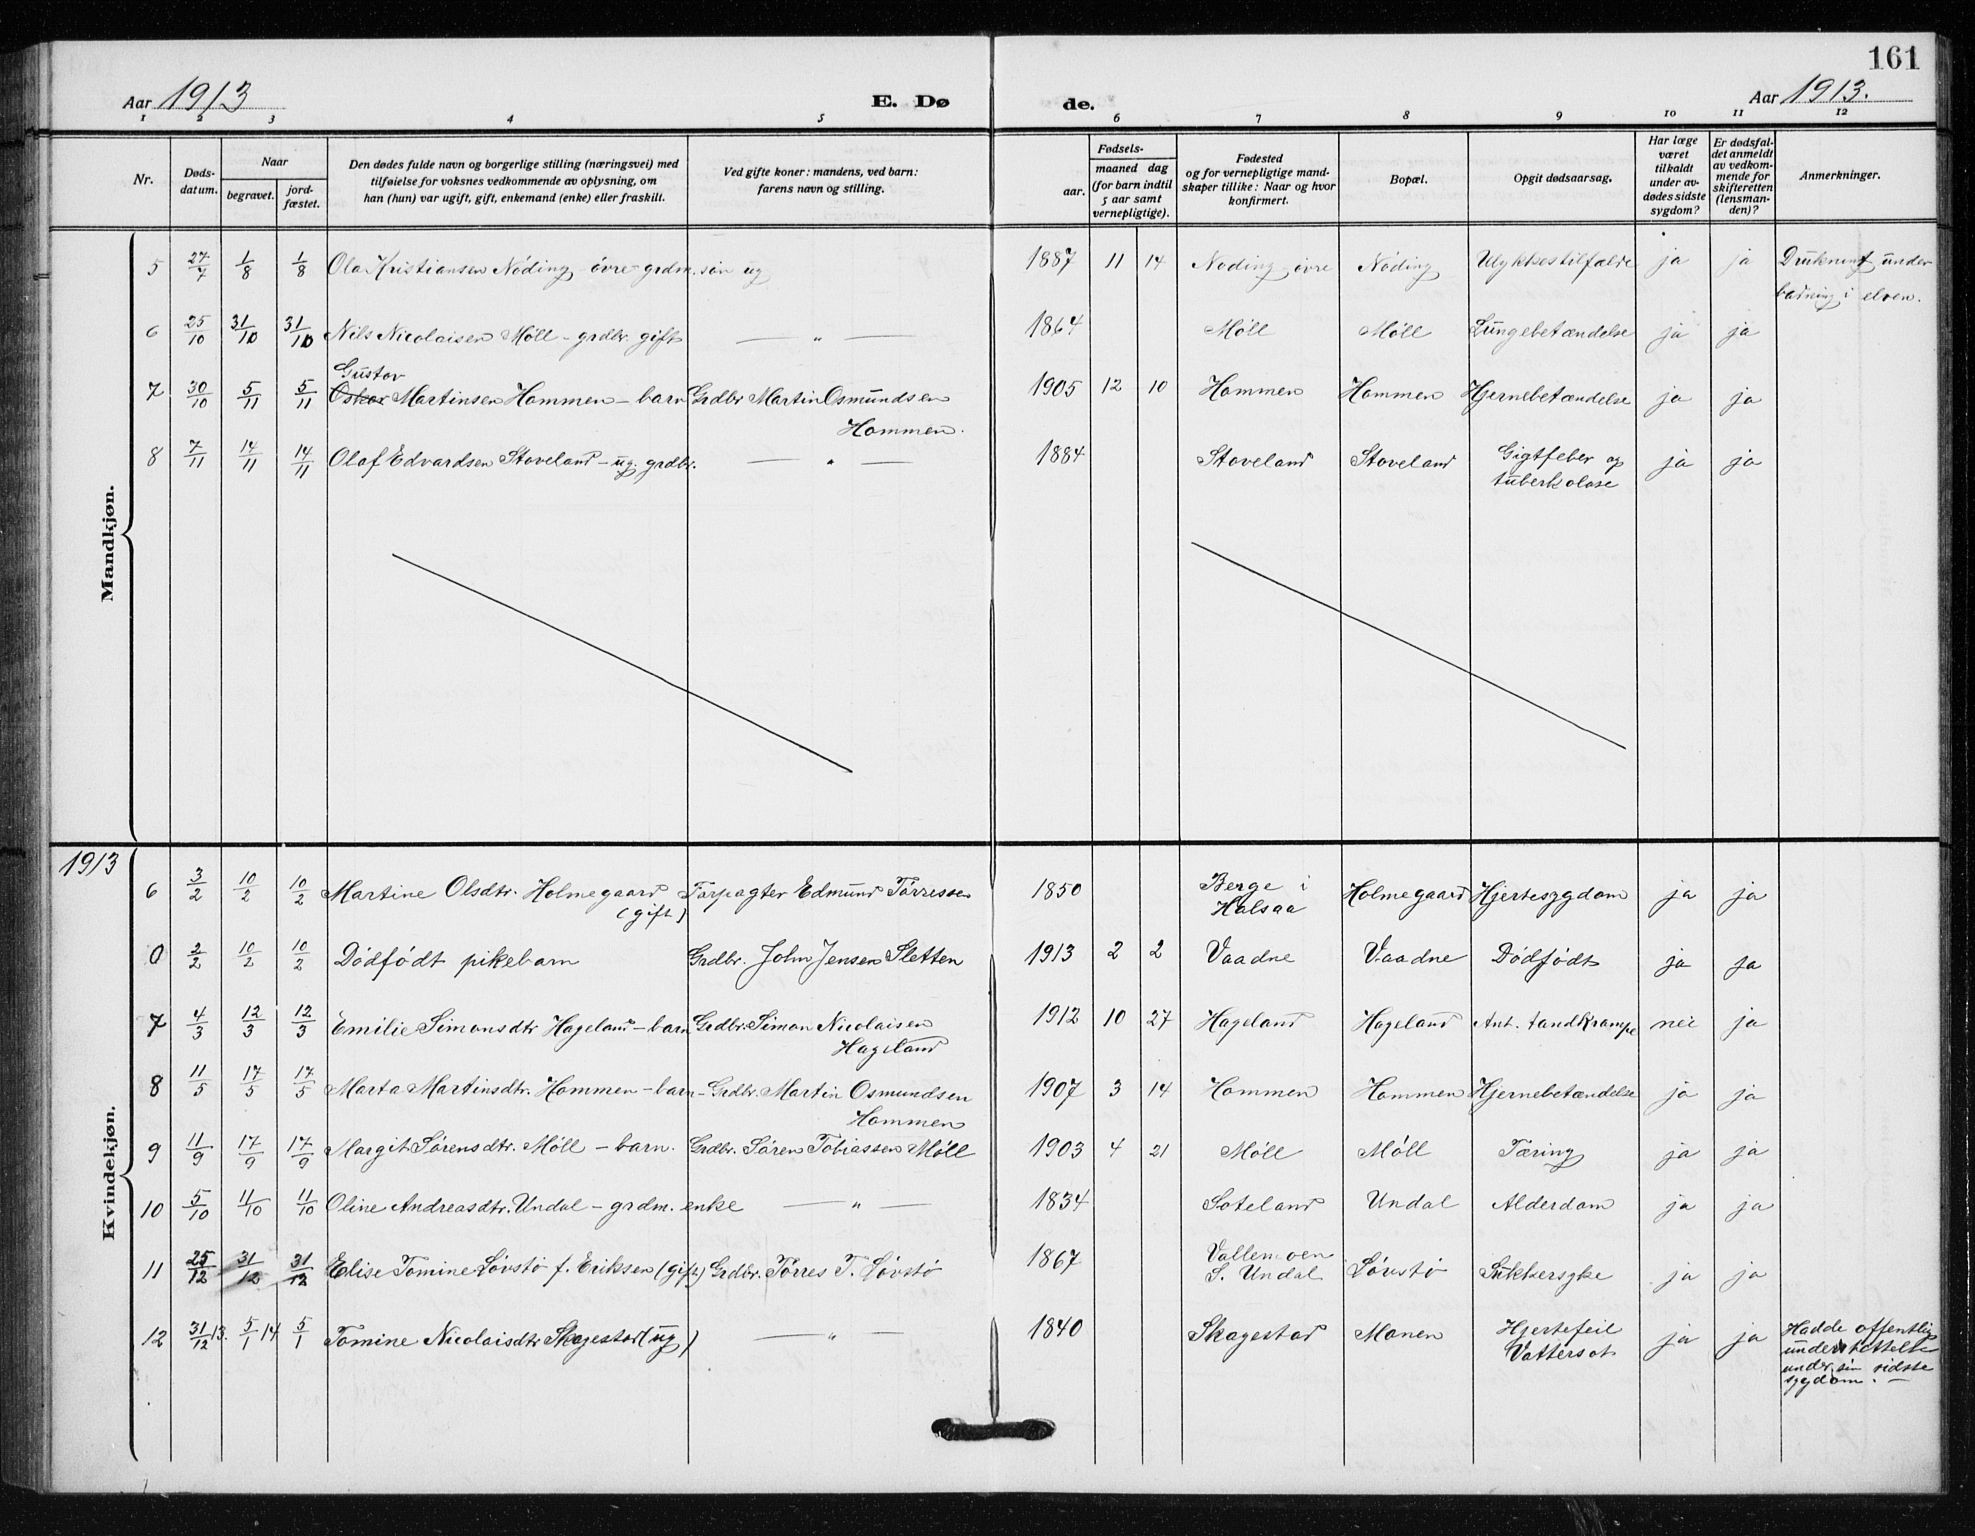 161
Aar 1913 E. Døde. Aar 1913.
1 2 3 4 5 6 7 8 9 10 11 12
Nr.
Døds-
datum.
Naar
begravet.
jord-
fæstet.
Den dødes fulde navn og borgerlige stilling (næringsvei) med
tilføielse for voksnes vedkommende av oplysning, om
han (hun) var ugift, gift, enkemand (enke) eller fraskilt.
Ved gifte koner: mandens, ved barn:
farens navn og stilling.
Fødsels-
aar.
maaned dag
(for barn indtil
5 aar samt
vernepligtige).
Fødested
og for vernepligtige mand-
skaper tillike: Naar og hvor
konfirmert.
Bopæl.
Opgit dødsaarsag.
Har læge
været
tilkaldt
under av-
dødes sidste
sygdom?
Er dødsfal-
det anmeldt
av vedkom-
mende for
skifteretten
(lensman-
den)?
Anmerkninger.
Mandkjøn.
5 27/7 1/8 1/8 Ola Kristiansen Nöding övre grdm. sön ug 1887 11 14 Nöding övre Nöding Ulykkestilfælde ja ja Drukning under
badning i elven.
6 25/10 31/10 31/10 Nils Nicolaisen Möll - grdbr. gift — " — 1864 Möll Möll Lungebetændelse ja ja
Gustav
7 30/10 5/11 5/11 Oskar Martinsen Hommen - barn Grdbr Martin Osmundsen 1905 12 10 Hommen Hommen Hjernebetændelse ja ja
Hommen.
8 7/11 14/11 14/11 Olaf Edvardsen Stoveland - ug. grdbr. — " — 1884 Stoveland Stoveland Gigtfeber og ja ja
tuberkolose
1913
Kvindekjøn.
6 3/2 10/2 10/2 Martine Olsdtr. Holmegaard Forpagter Edmund Törressen 1850 Berge i Holmegaard Hjertesygdom ja ja
(gift) Halsaa
0 2/2 10/2 10/2 Dödfödt pikebarn Grdbr. John Jensen Sletten 1913 2 2 Vaadne Vaadne Dödfödt ja ja
7 4/3 12/3 12/3 Emilie Simonsdtr Hageland - barn Grdbr. Simon Nicolaisen 1912 10 27 Hageland Hageland Ant. tandkrampe nei ja
Hageland
8 11/5 17/5 17/5 Marta Martinsdtr. Hommen - barn - Grdbr. Martin Osmundsen 1907 3 14 Hommen Hommen Hjernebetændelse ja ja
Hommen
9 11/9 17/9 17/9 Margit Sörensdtr. Möll - barn. Grdbr. Sören Tobiassen Möll 1903 4 21 Möll Möll Tæring ja ja
10 5/10 11/10 11/10 Oline Andreasdtr. Undal - grdm. enke — " — 1834 Soteland Undal Alderdom ja ja
11 25/12 31/12 31/12 Elise Tomine Lövstö f. Eriksen (gift) Grdbr. Törres T. Lövstö 1867 Vallemoen Lövstö Sukkersyke ja ja
S. Undal
12 31/12 13. 5/1 14 5/1 Tomine Nicolaisdtr Skagestad (ug) — " — 1840 Skagestad Monen Hjertefeil ja ja Hadde offentlig
Vattersot understöttelse
under sin sidste
sygdom. —